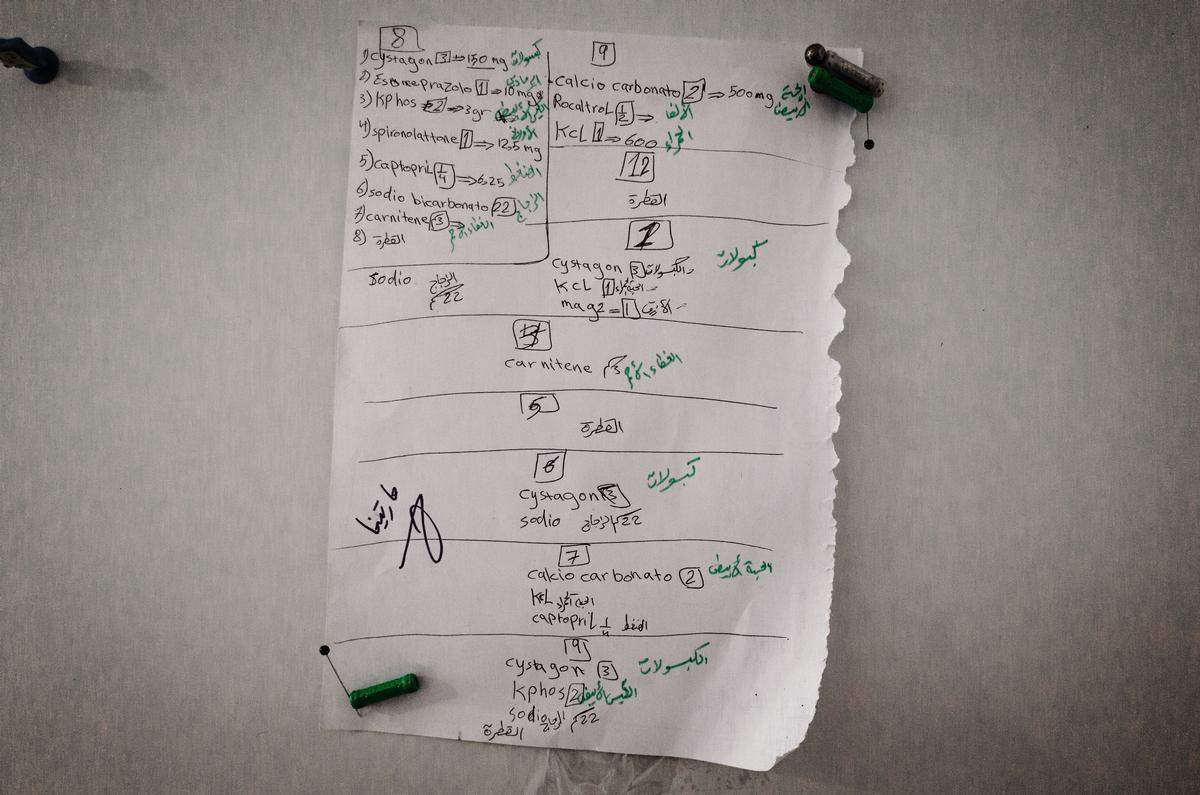 8
1) cystagon 3 ⇒ 150 mg كبسولات
2) Esomeprazolo 1 ⇒ 10 mg الرمادي
3) Kphos 2 ⇒ 3gr الكيس الأبيض
4) spironolattone 1 ⇒ 12,5 mg
5) captopriL 1/4 ⇒ 6,25 الضغط
6) sodio bicarbonato 22 الزجاج
7) carnitene 3 ⇒ الغطاء الأحمر
8) القطرة
sodio الزجاج
22
9
calcio carbonato 2 ⇒ 500 mg الحبة الأبيض
RocaltroL 1/2 ⇒
KcL 1 ⇒ 600
12
القطرة
2
cystagon 3 الكبسولات كبسولات
KcL 1
mag2 = 1
carnitene 3 الغطاء الأحمر
5
القطرة
6
cystagon 3 كبسولات
sodio الزجاج 22
مارتينا
7
calcio carbonato 2 الحبة الأبيض
KcL
captopriL 1/4 الضغط
9
cystagon 3 الكبسولات
Kphos 2 الكيس الأبيض
sodio الزجاج 22
القطرة